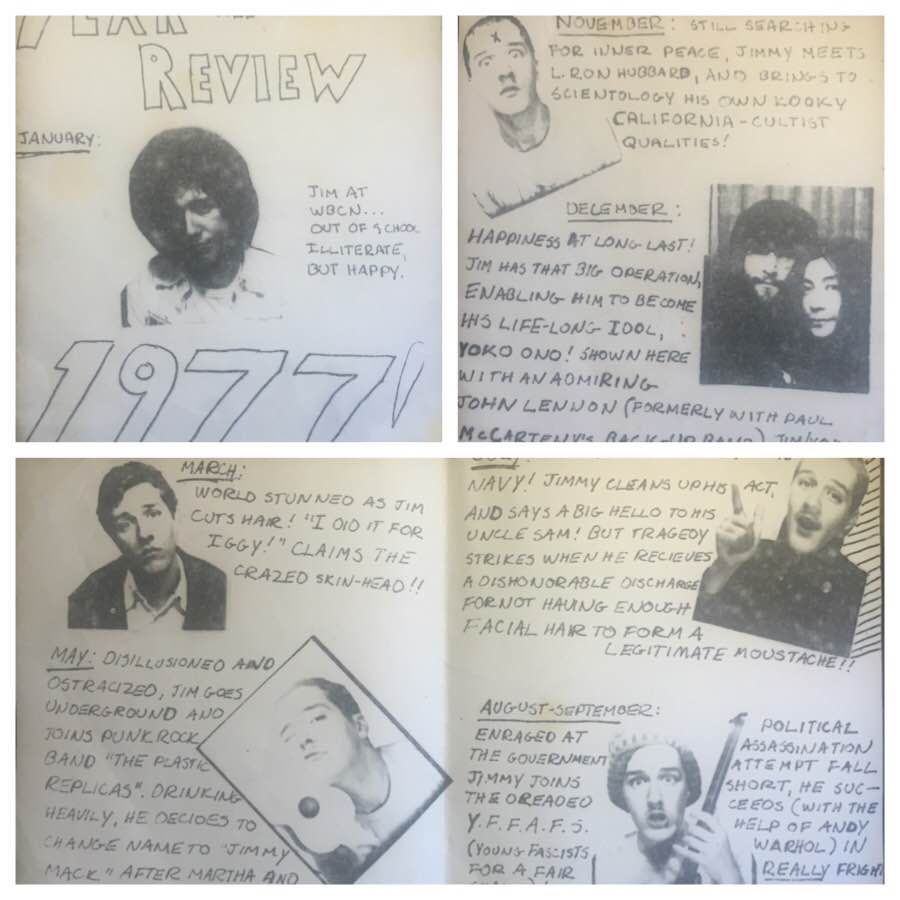 REVIEW
JANUARY:
JIM AT
WBCN...
OUT OF SCHOOL
ILLITERATE,
BUT HAPPY.
1977
NOVEMBER: STILL SEARCHING
FOR INNER PEACE, JIMMY MEETS
L. RON HUBBARD, AND BRINGS TO
SCIENTOLOGY HIS OWN KOOKY
CALIFORNIA-CULTIST
QUALITIES!
DECEMBER:
HAPPINESS AT LONG LAST!
JIM HAS THAT BIG OPERATION,
ENABLING HIM TO BECOME
HIS LIFE-LONG IDOL,
YOKO ONO! SHOWN HERE
WITH AN ADMIRING
JOHN LENNON (FORMERLY WITH PAUL
McCARTENY'S BACK-UP BAND)
MARCH:
WORLD STUNNED AS JIM
CUTS HAIR! "I DID IT FOR
IGGY!" CLAIMS THE
CRAZED SKIN-HEAD!!
MAY: DISILLUSIONED AND
OSTRACIZED, JIM GOES
UNDERGROUND AND
JOINS PUNK ROCK
BAND "THE PLASTIC
REPLICAS". DRINKING
HEAVILY, HE DECIDES TO
CHANGE NAME TO "JIMMY
MACK" AFTER MARTHA AND
NAVY! JIMMY CLEANS UP HIS ACT,
AND SAYS A BIG HELLO TO HIS
UNCLE SAM! BUT TRAGEDY
STRIKES WHEN HE RECIEVES
A DISHONORABLE DISCHARGE
FOR NOT HAVING ENOUGH
FACIAL HAIR TO FORM A
LEGITIMATE MOUSTACHE!!
AUGUST-SEPTEMBER:
ENRAGED AT
THE GOVERNMENT
JIMMY JOINS
THE DREADED
Y.F.F.A.F.S.
(YOUNG FASCISTS
FOR A FAIR
POLITICAL
ASSASSINATION
ATTEMPT FALL
SHORT, HE SUC-
CEEDS (WITH THE
HELP OF ANDY
WARHOL) IN
REALLY FRIGH